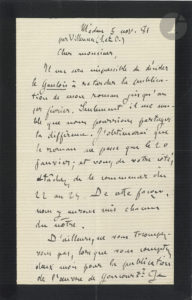 Médan 5 nov. 81
par Villennes, S. et O.
Cher monsieur
Il me sera impossible de décider
le Gaulois à retarder la publica-
tion de mon roman jusqu'au
1er février. Seulement il me sem-
ble que nous pourrions partager
la différence. J'obtiendrai que
le roman ne passe que le 20
janvier; et vous, de votre côté,
tâchez de le commencer du
22 au 25. De cette façon
nous y aurons mis chacun
du nôtre.
D'ailleurs, ne vous trompez-
vous pas, lorsque vous comptez
deux mois pour la publication
de l'œuvre de Goncourt? Je